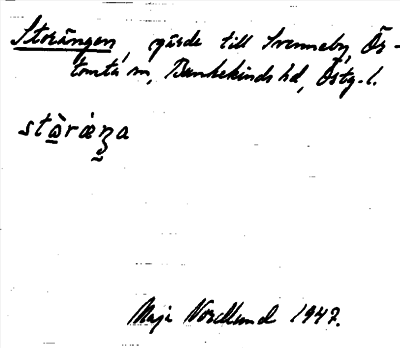 Storängen, gärde till Svenneby, Ör-
tomta sn, Bankekinds hd, Östg. l.
stà̱ràŋa
Maja Nordlund 1947.